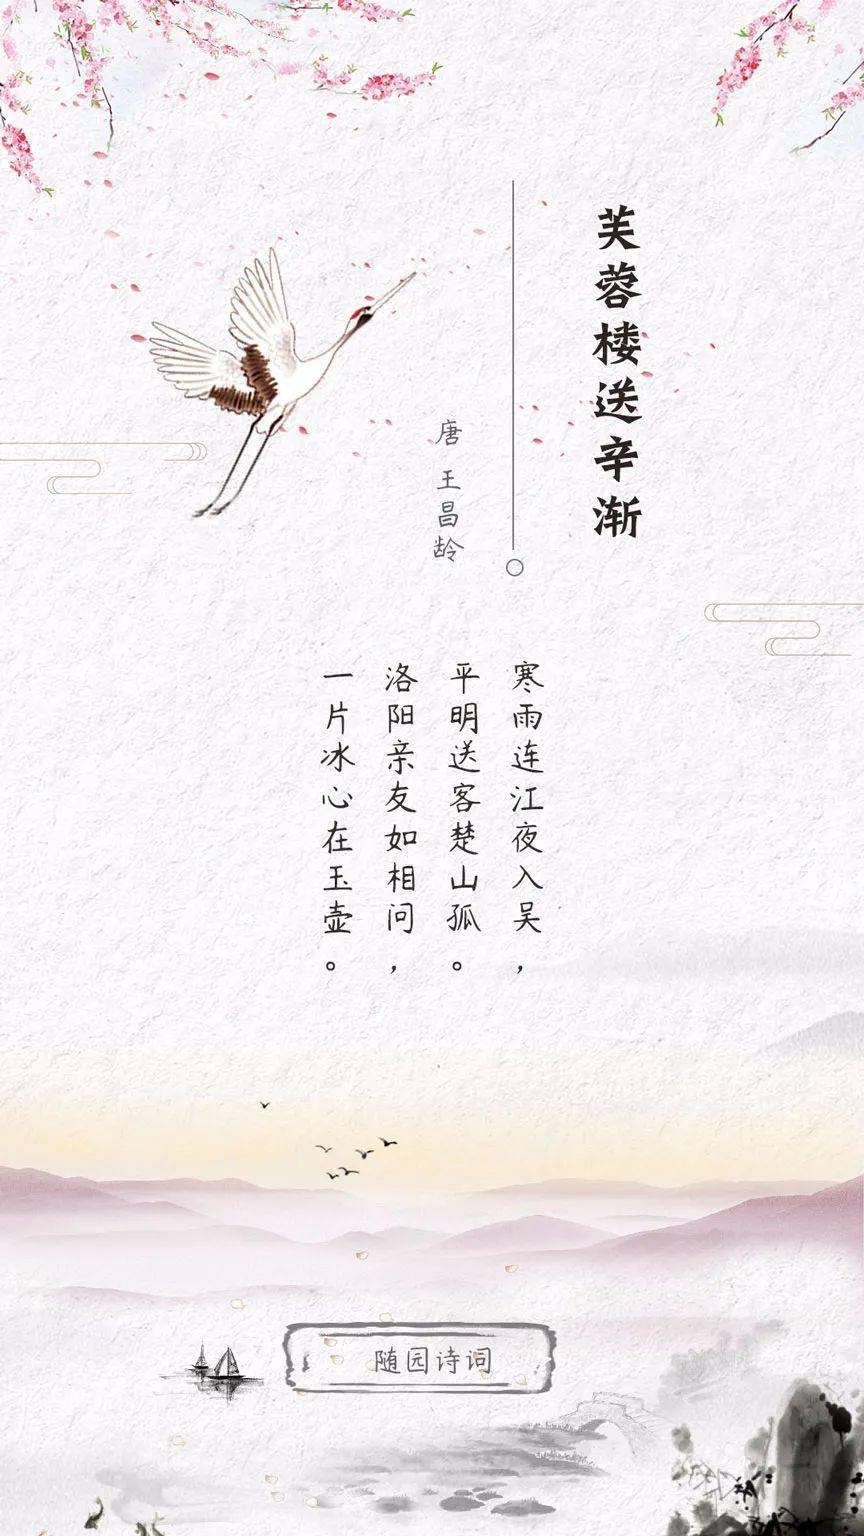 芙蓉楼送辛渐
唐 王昌龄
寒雨连江夜入吴，
平明送客楚山孤。
洛阳亲友如相问，
一片冰心在玉壶。
随园诗词